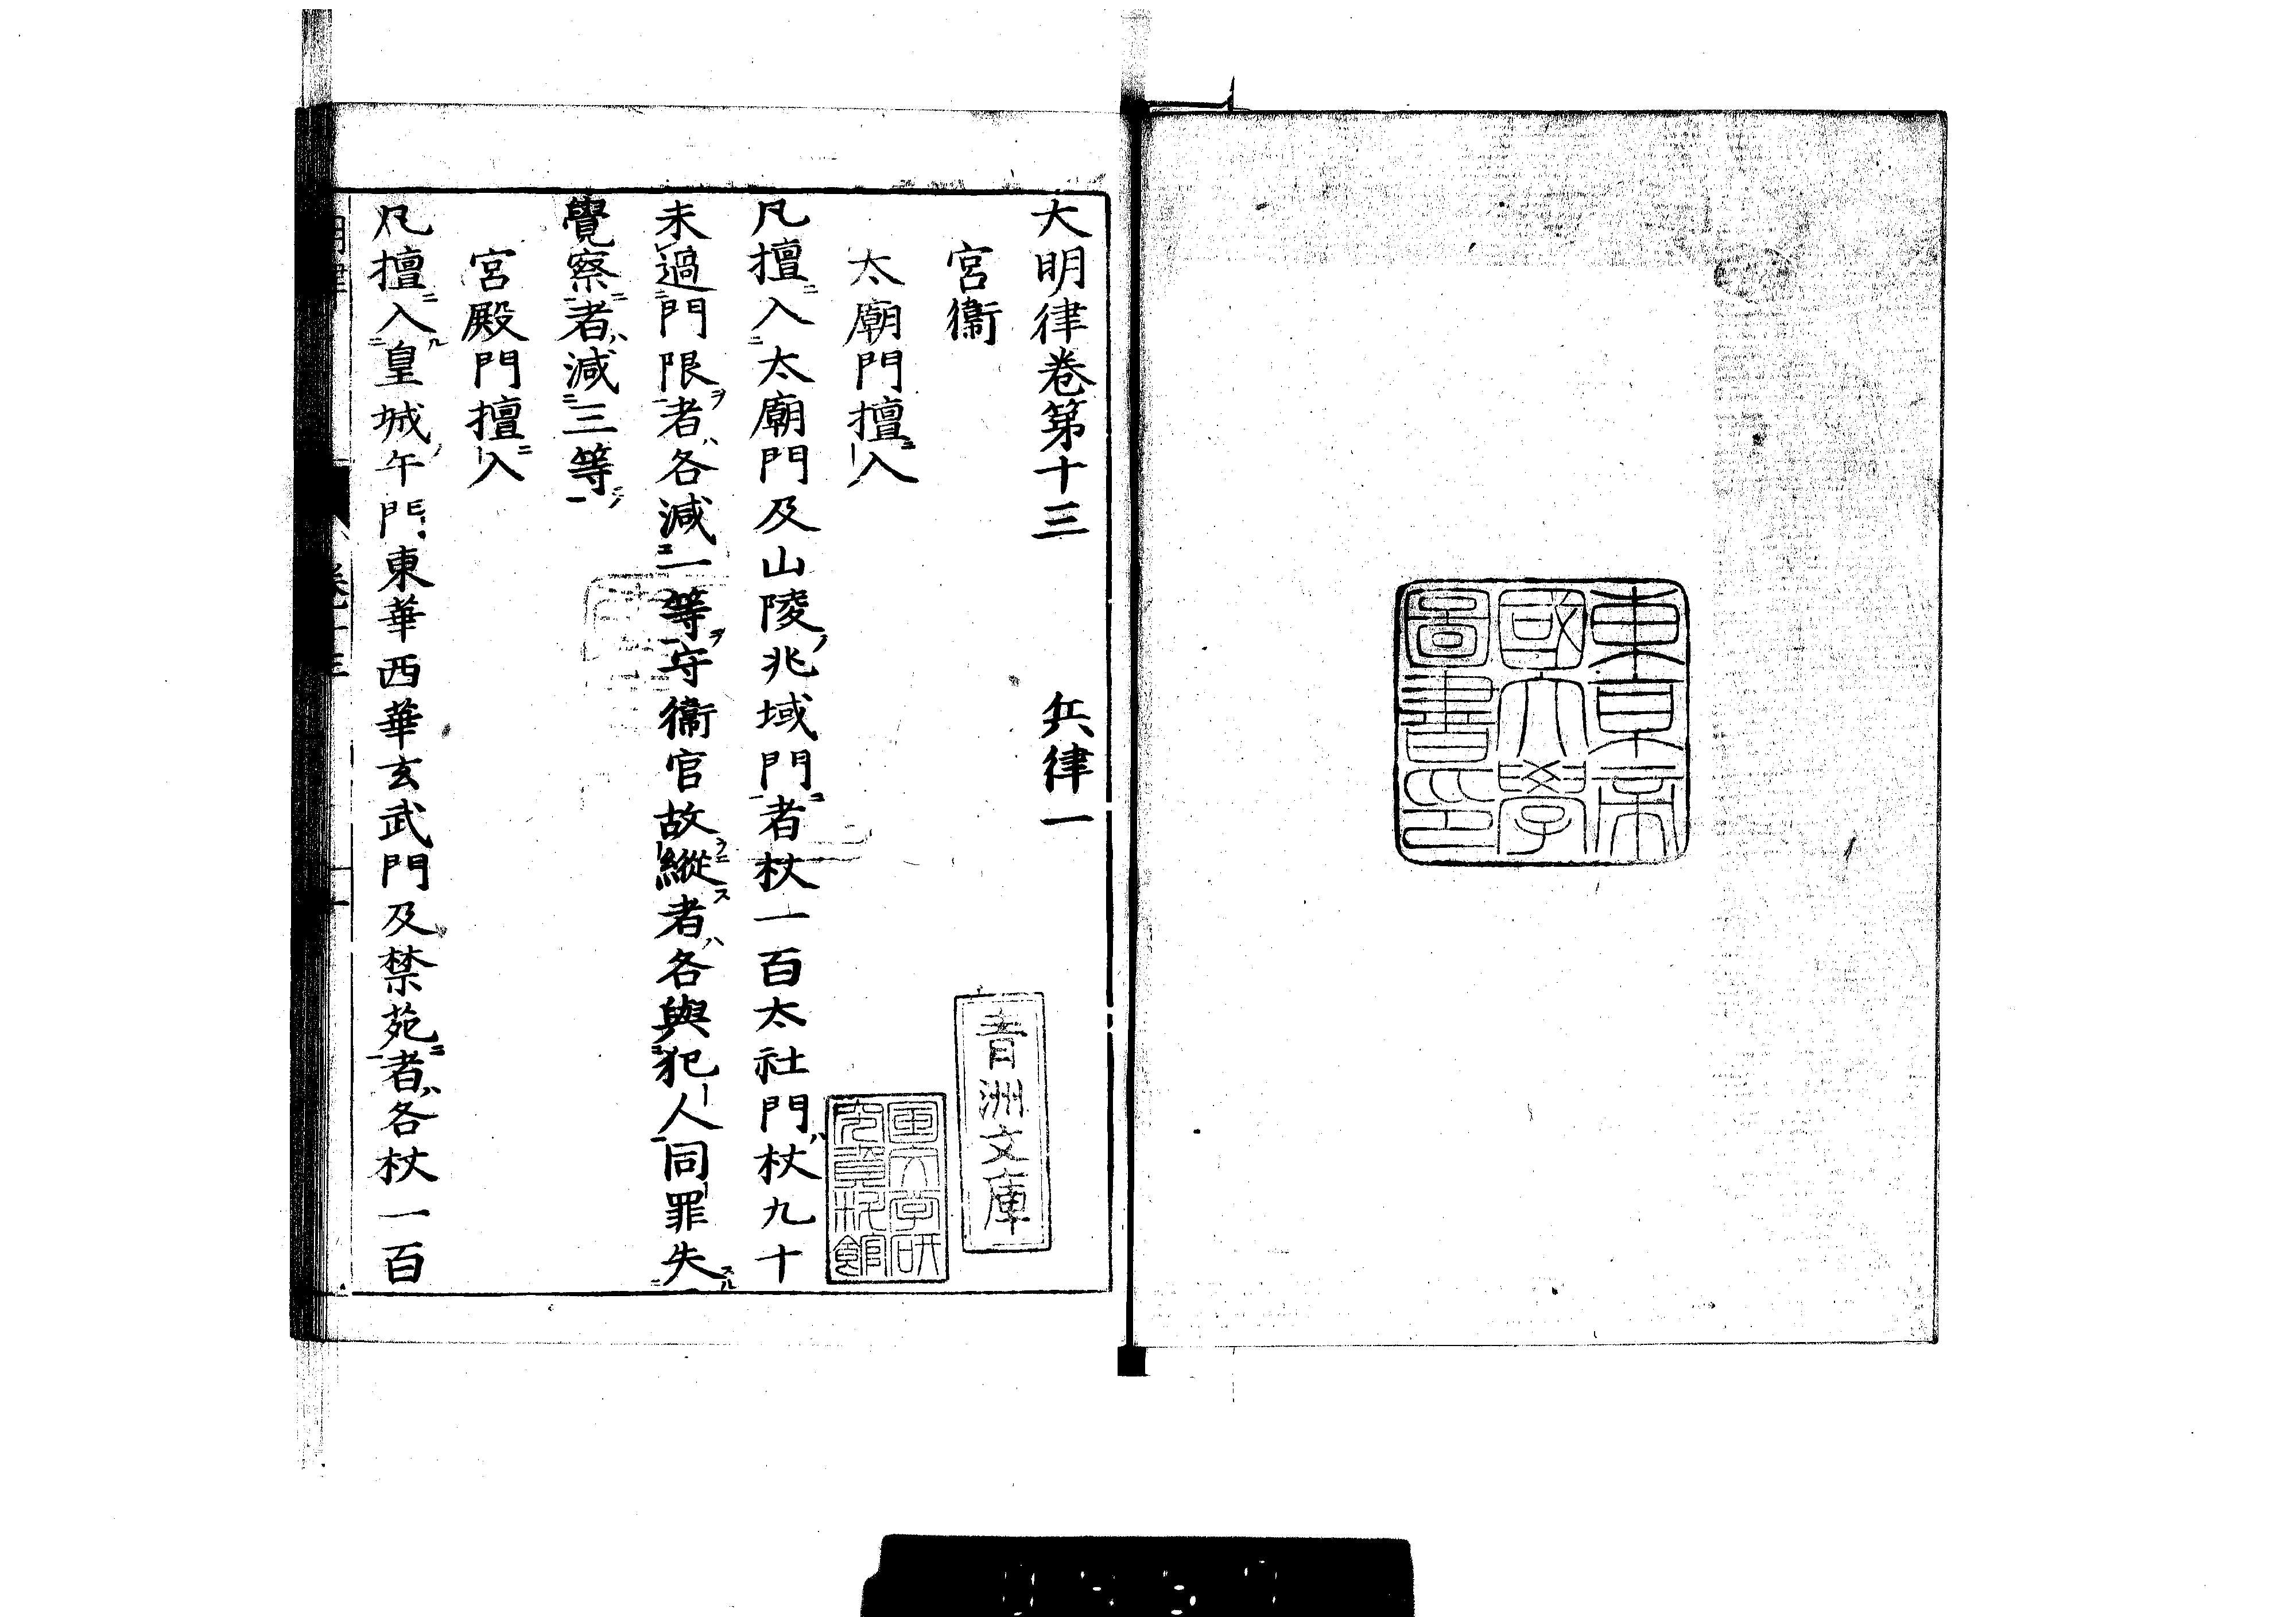 東京帝
國大學
圖書印
大明律卷第十三 兵律一
宮衞
太廟門擅入
凡擅入太廟門及山陵兆域門者杖一百太社門杖九十
未過門限者各減一等守衞官故縱者各與犯人同罪失
覺察者減三等
宮殿門擅入
凡擅入皇城午門東華西華玄武門及禁苑者各杖一百
青洲文庫